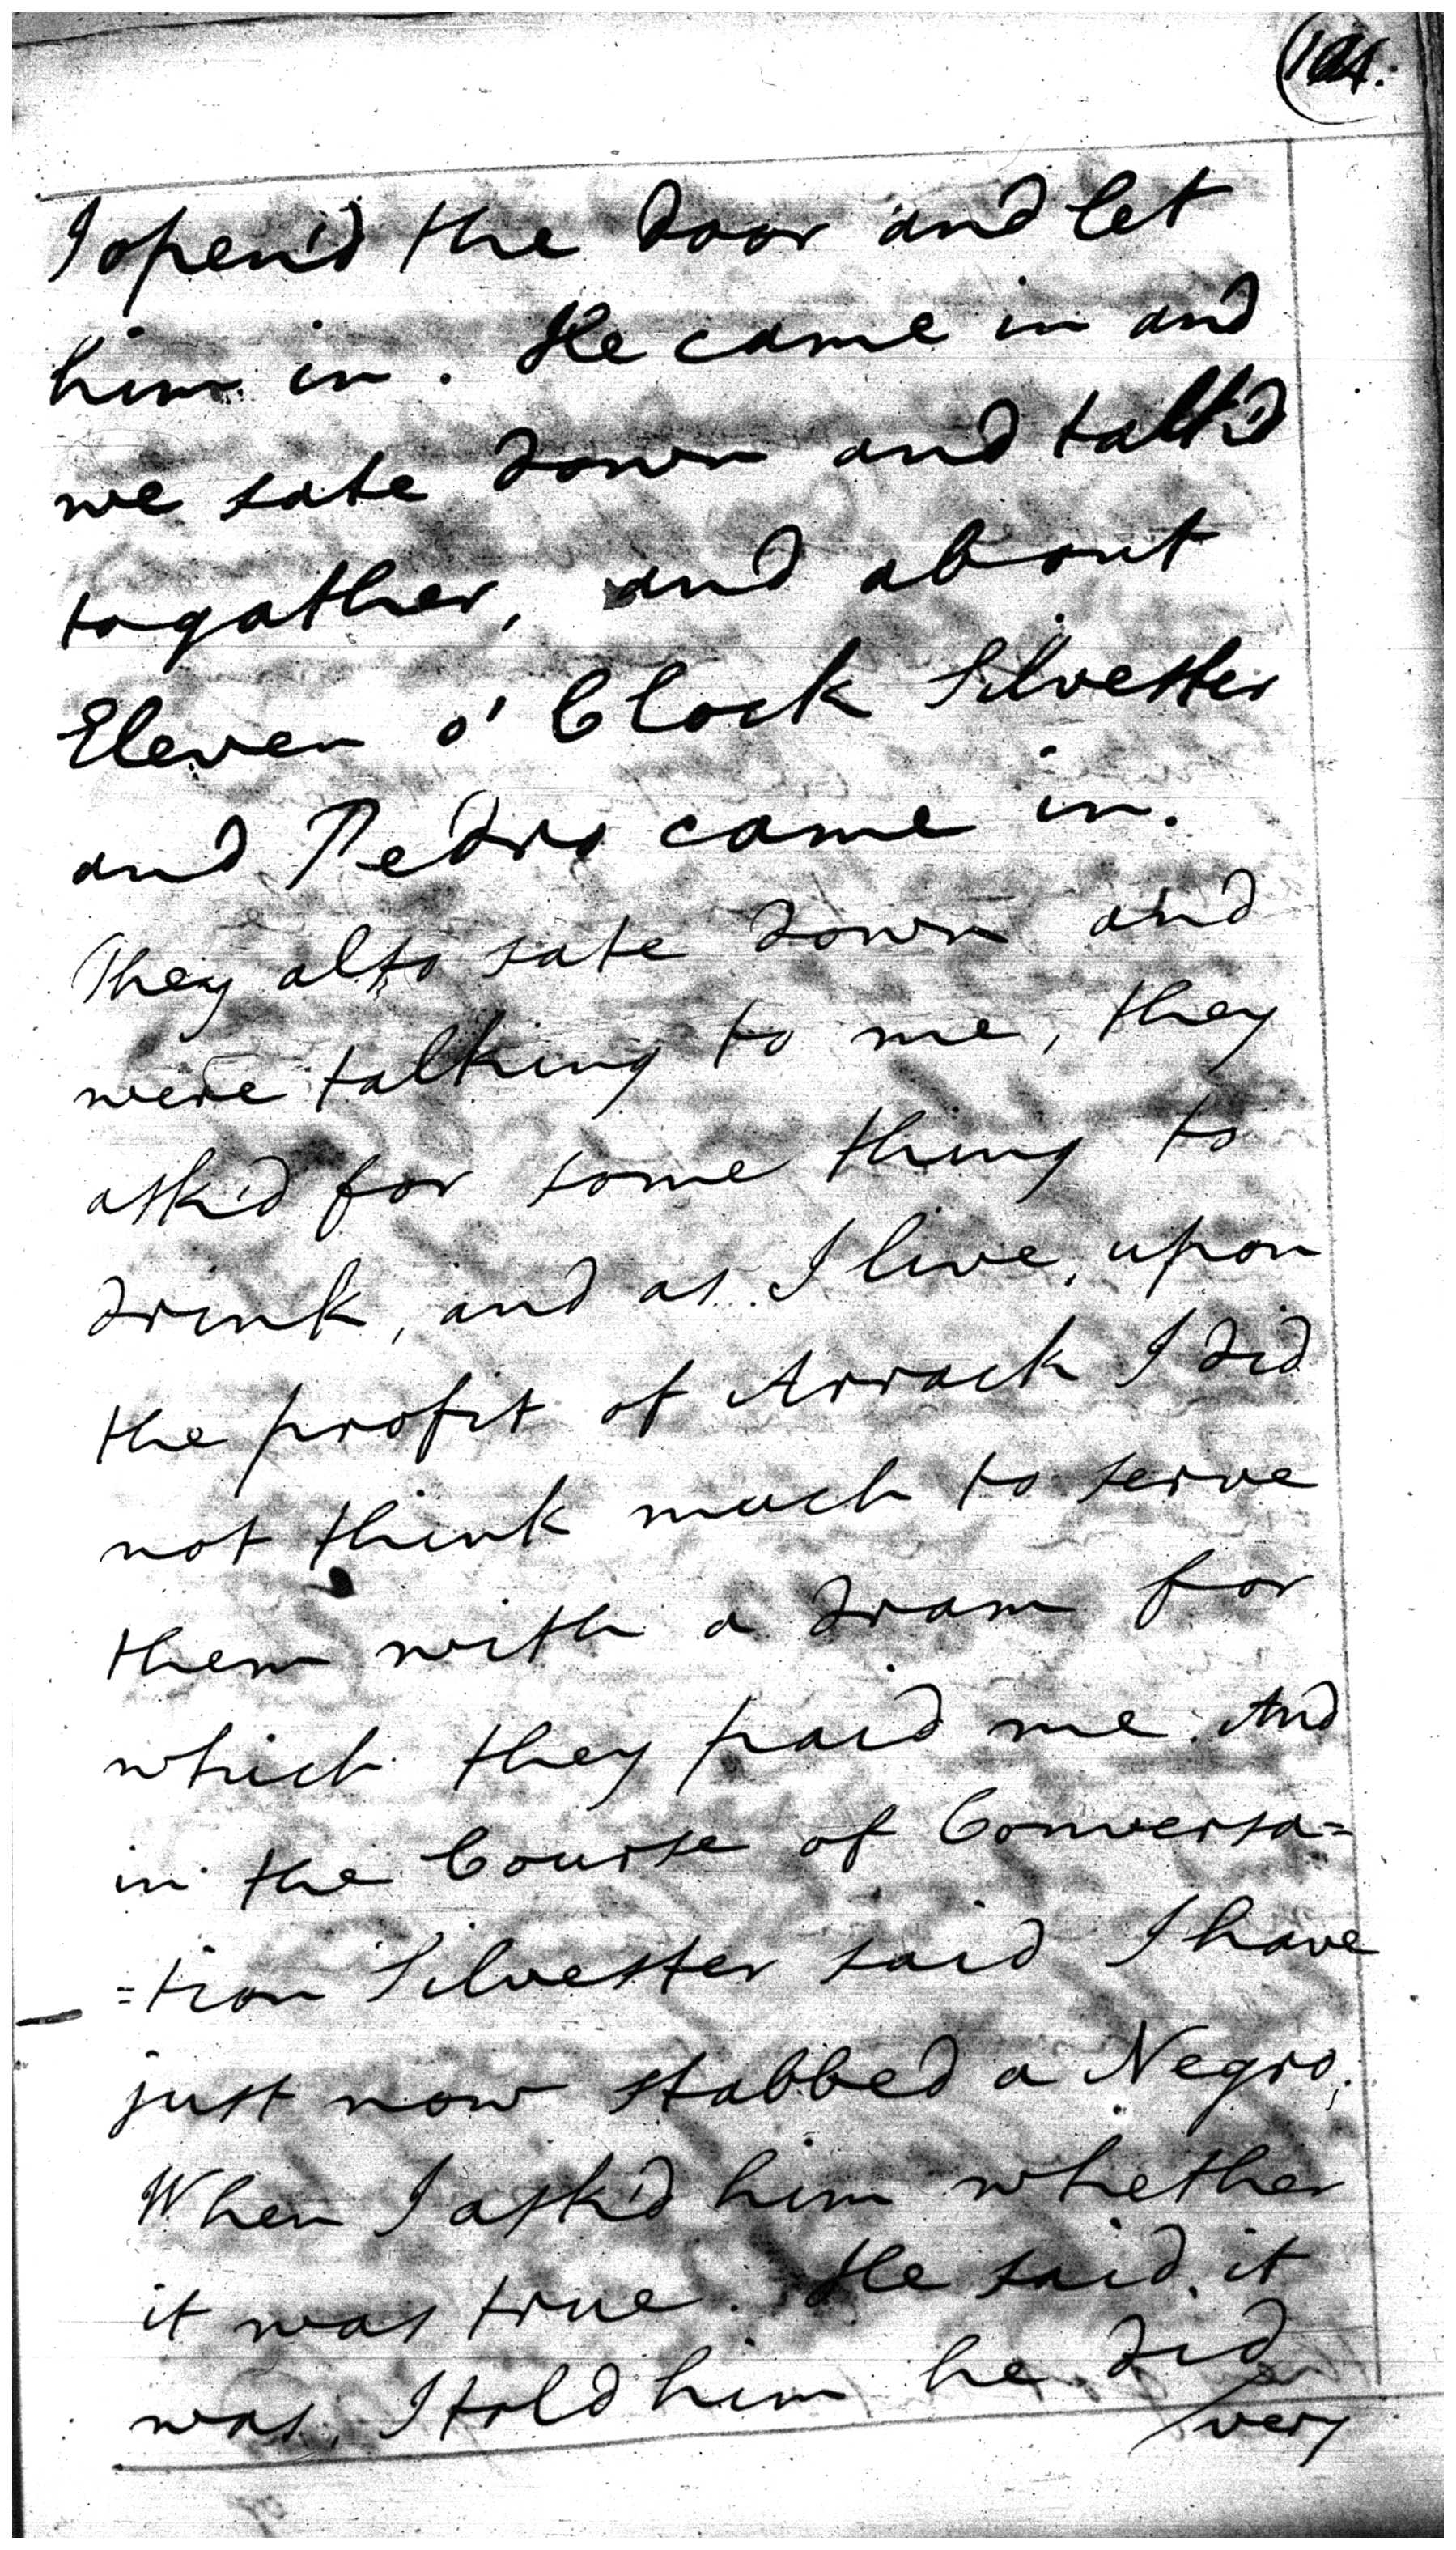 I open'd the door and let
him in. He came in and
we sate down and talk'd
togather, and about
Eleven o' Clock Silvester
and Pedro came in.
They also sate down and
were talking to me, they
ask'd for some thing to
drink, and as I live, upon
the profit of Arrack I did
not think much to serve
them with a dram for
which they paid me. And
in the Course of Conversa=
=tion Silvester said I have
just now stabbed a Negro;
When I ask'd him whether
it was true. He said, it
was, I told him he did
/very